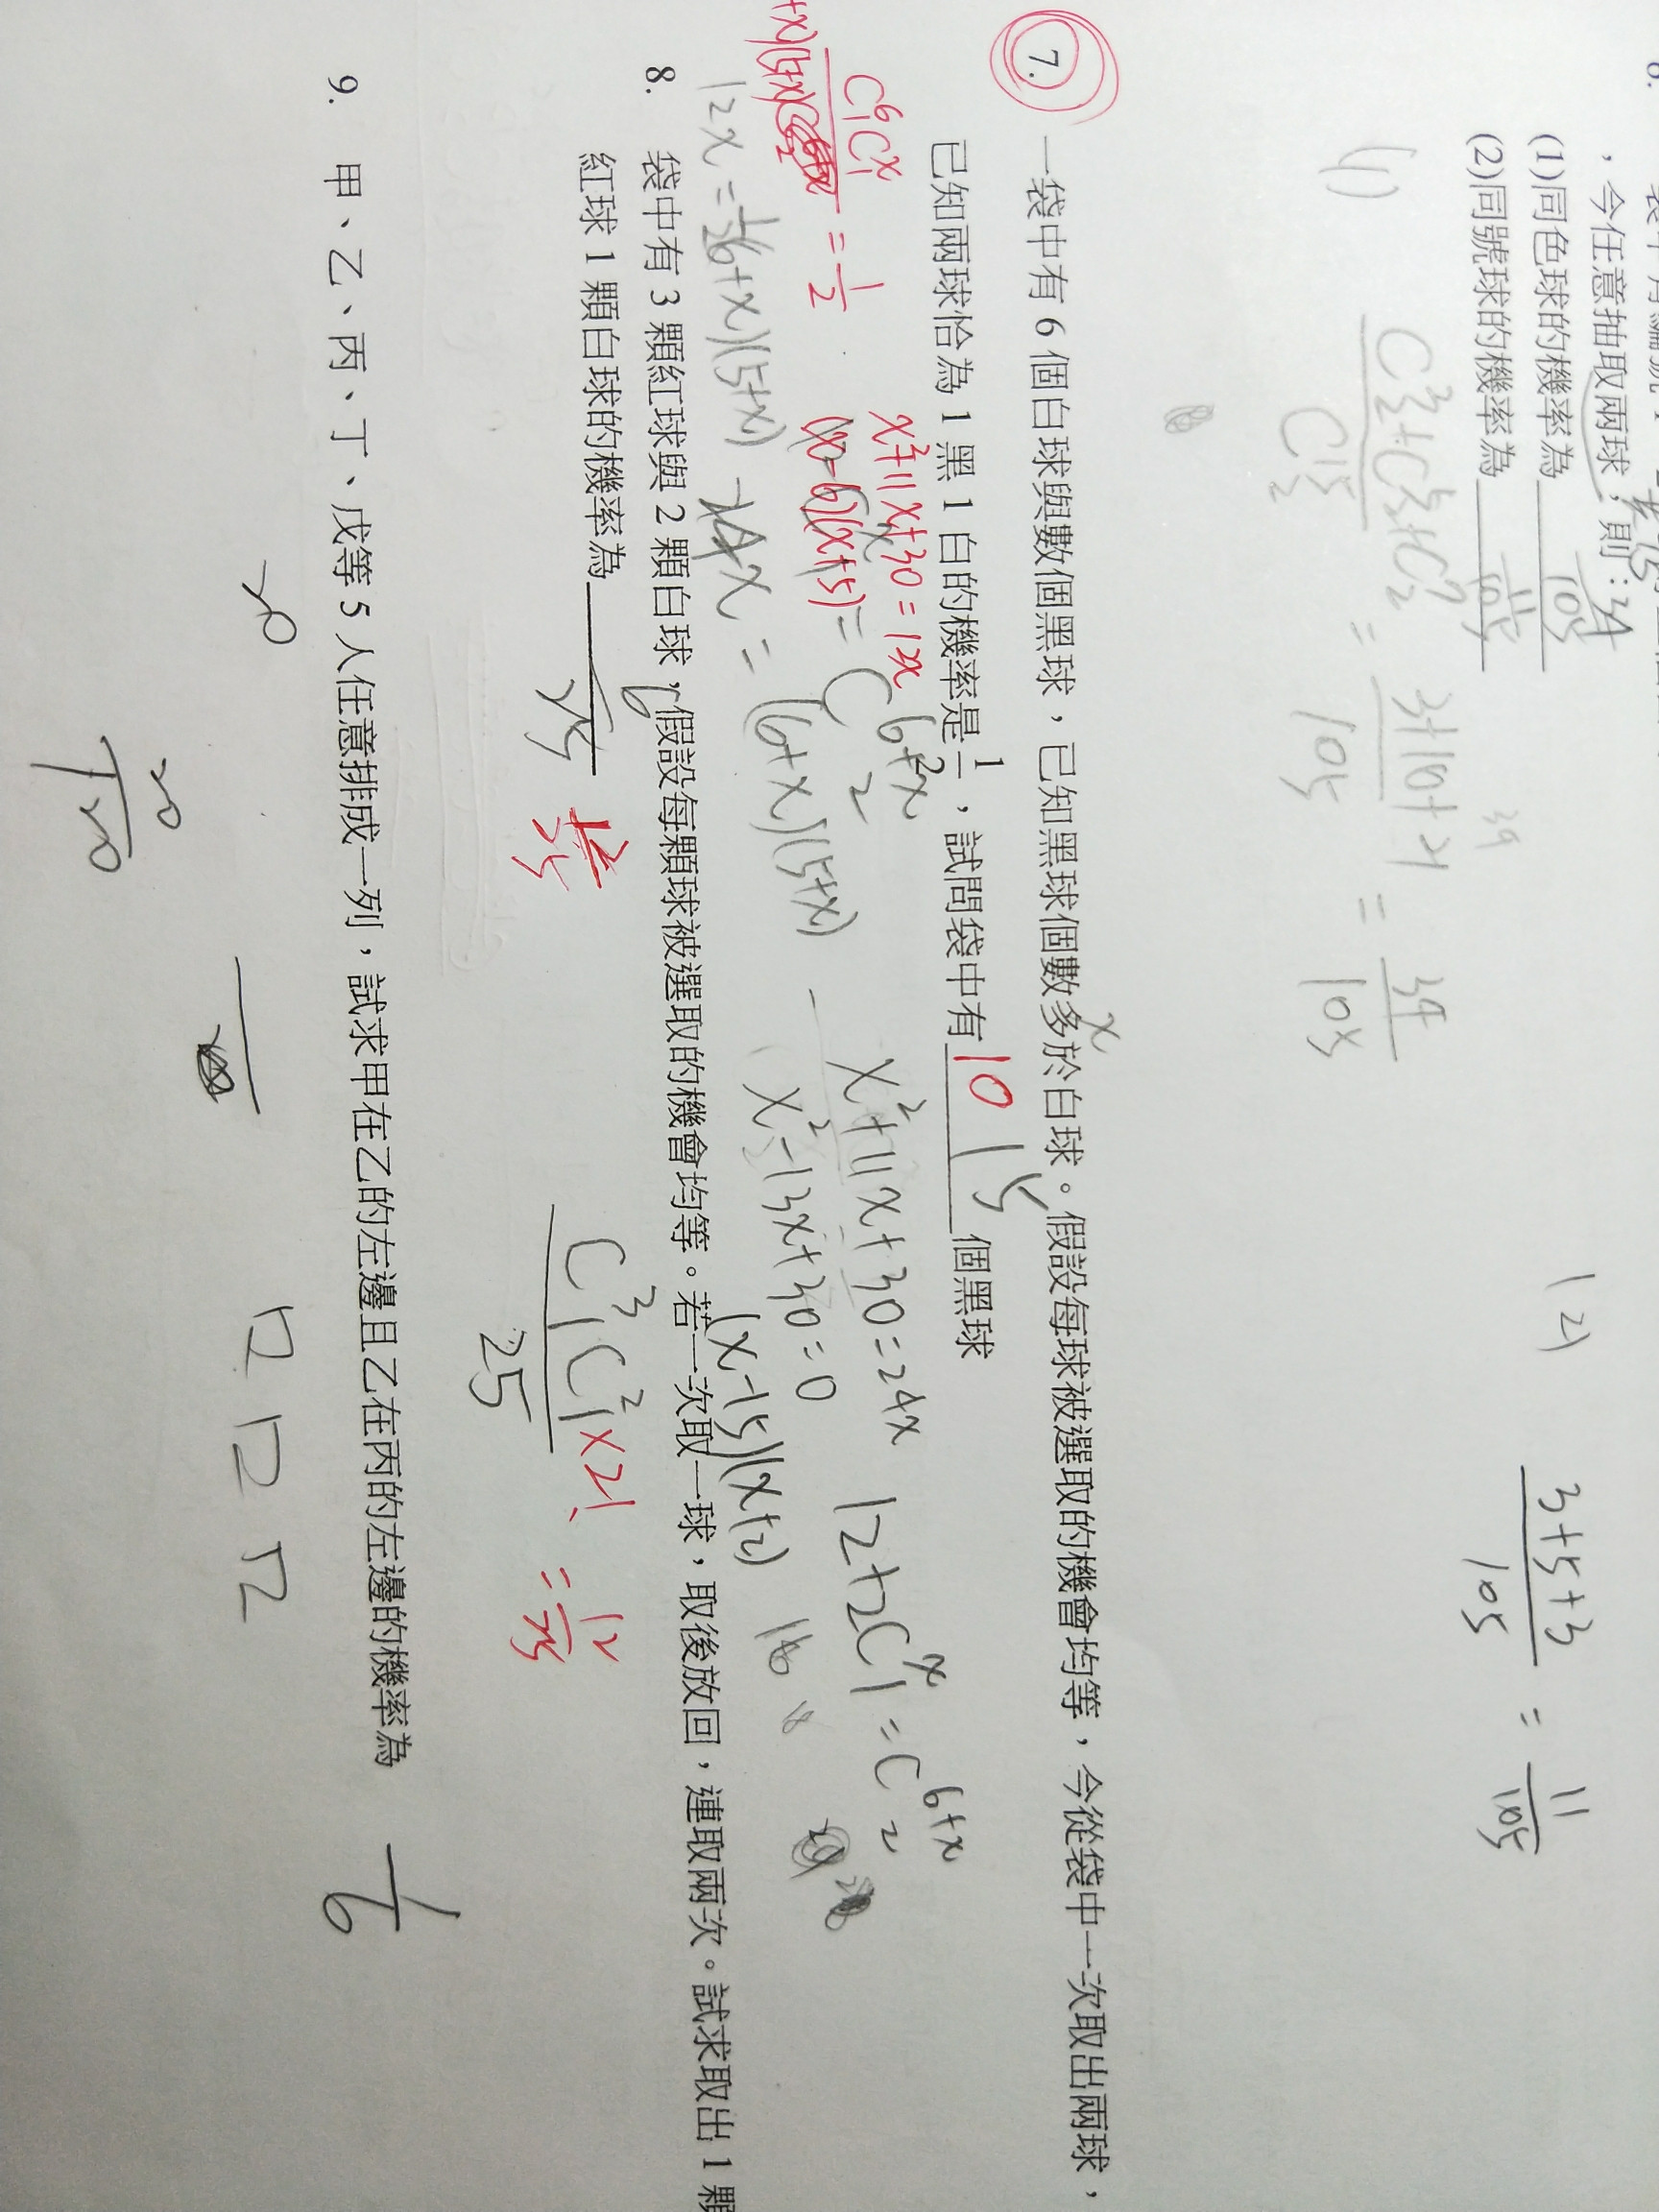 ，今任意抽取兩球，則：
(1)同色球的機率為 34/105
(2)同號球的機率為 11/105
(1)
C³₂+C⁵₂+C⁷₂ / C¹⁵₂ = 3+10+21 / 105 = 34/105
(2) 3+5+3 / 105 = 11/105
7. 一袋中有 6 個白球與數個黑球，已知黑球個數多於白球。假設每球被選取的機會均等，今從袋中一次取出兩球，
x
已知兩球恰為 1 黑 1 白的機率是 1/2，試問袋中有 10 15 個黑球
C⁶₁Cˣ₁ = 1/2
x²+11x+30=12x
(x-6)(x+5)=
C⁶⁺ˣ₂
x²+11x+30=24x
12+2Cˣ₁=C⁶⁺ˣ₂
12x=1/2(6+x)(5+x)
24x=(6+x)(5+x)
x²-13x+30=0
(x-15)(x+2)
8. 袋中有 3 顆紅球與 2 顆白球，假設每顆球被選取的機會均等。若一次取一球，取後放回，連取兩次。試求取出 1 顆
紅球 1 顆白球的機率為
6/25
12/25
C³₁C²₁×2! / 25 = 12/25
9. 甲、乙、丙、丁、戊等 5 人任意排成一列，試求甲在乙的左邊且乙在丙的左邊的機率為 1/6
20
20/120